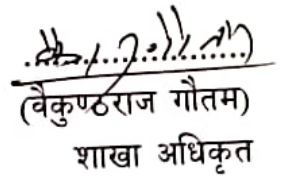 (वैकुण्ठराज गौतम)
शाखा अधिकृत